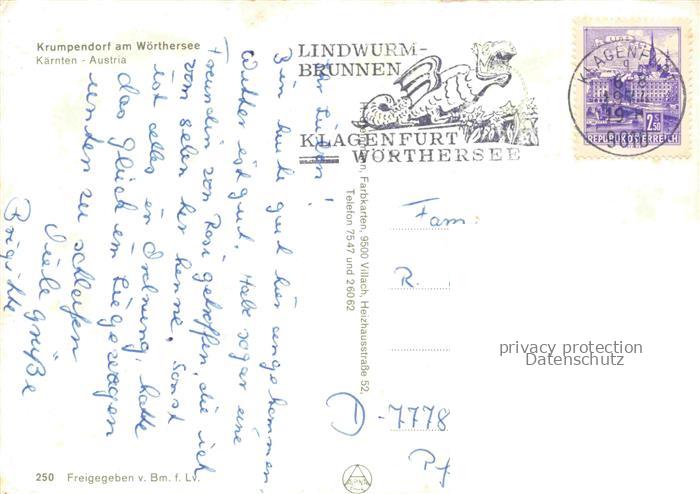 Krumpendorf am Wörthersee
Kärnten - Austria
LINDWURM-
BRUNNEN
KLAGENFURT
WÖRTHERSEE
KLAGENFURT
2.50
REPUBLIK ÖSTERREICH
Ihr Lieben!
Bin heute gut hier angekommen,
Wetter ist gut. Habe sogar eine
Freundin von Rosi getroffen, die ich
vom sehen her kenne. Sonst
ist alles in Ordnung, hatte
das Glück im Liegewagen
unten zu schlafen
Viele Grüße
Brigitte
Farbkarten, 9500 Villach, Heizhausstraße 52,
Telefon 7547 und 26062
Fam.
R.
D-7778
privacy protection
Datenschutz
250 Freigegeben v. Bm. f. Lv.